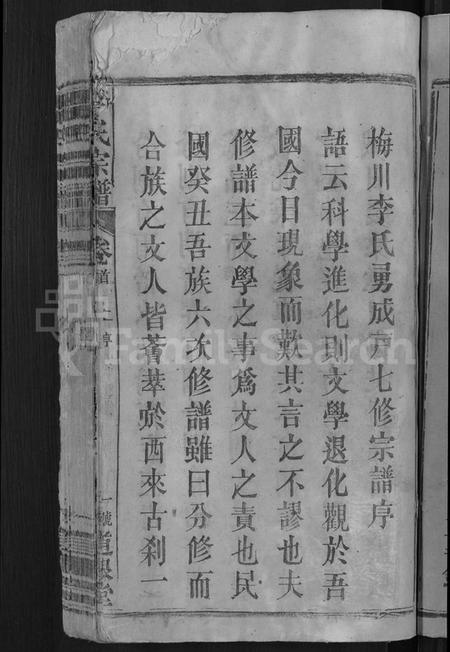 梅川李氏勇成戶七修宗譜序
語云科學進化則文學退化觀於吾
國今日現象而歎其言之不謬也夫
修譜本文學之事爲文人之責也民
國癸丑吾族六次修譜雖曰分修而
合族之文人皆薈萃於西來古刹一
氏宗譜
卷首上
序
一號
堂
FamilySearch